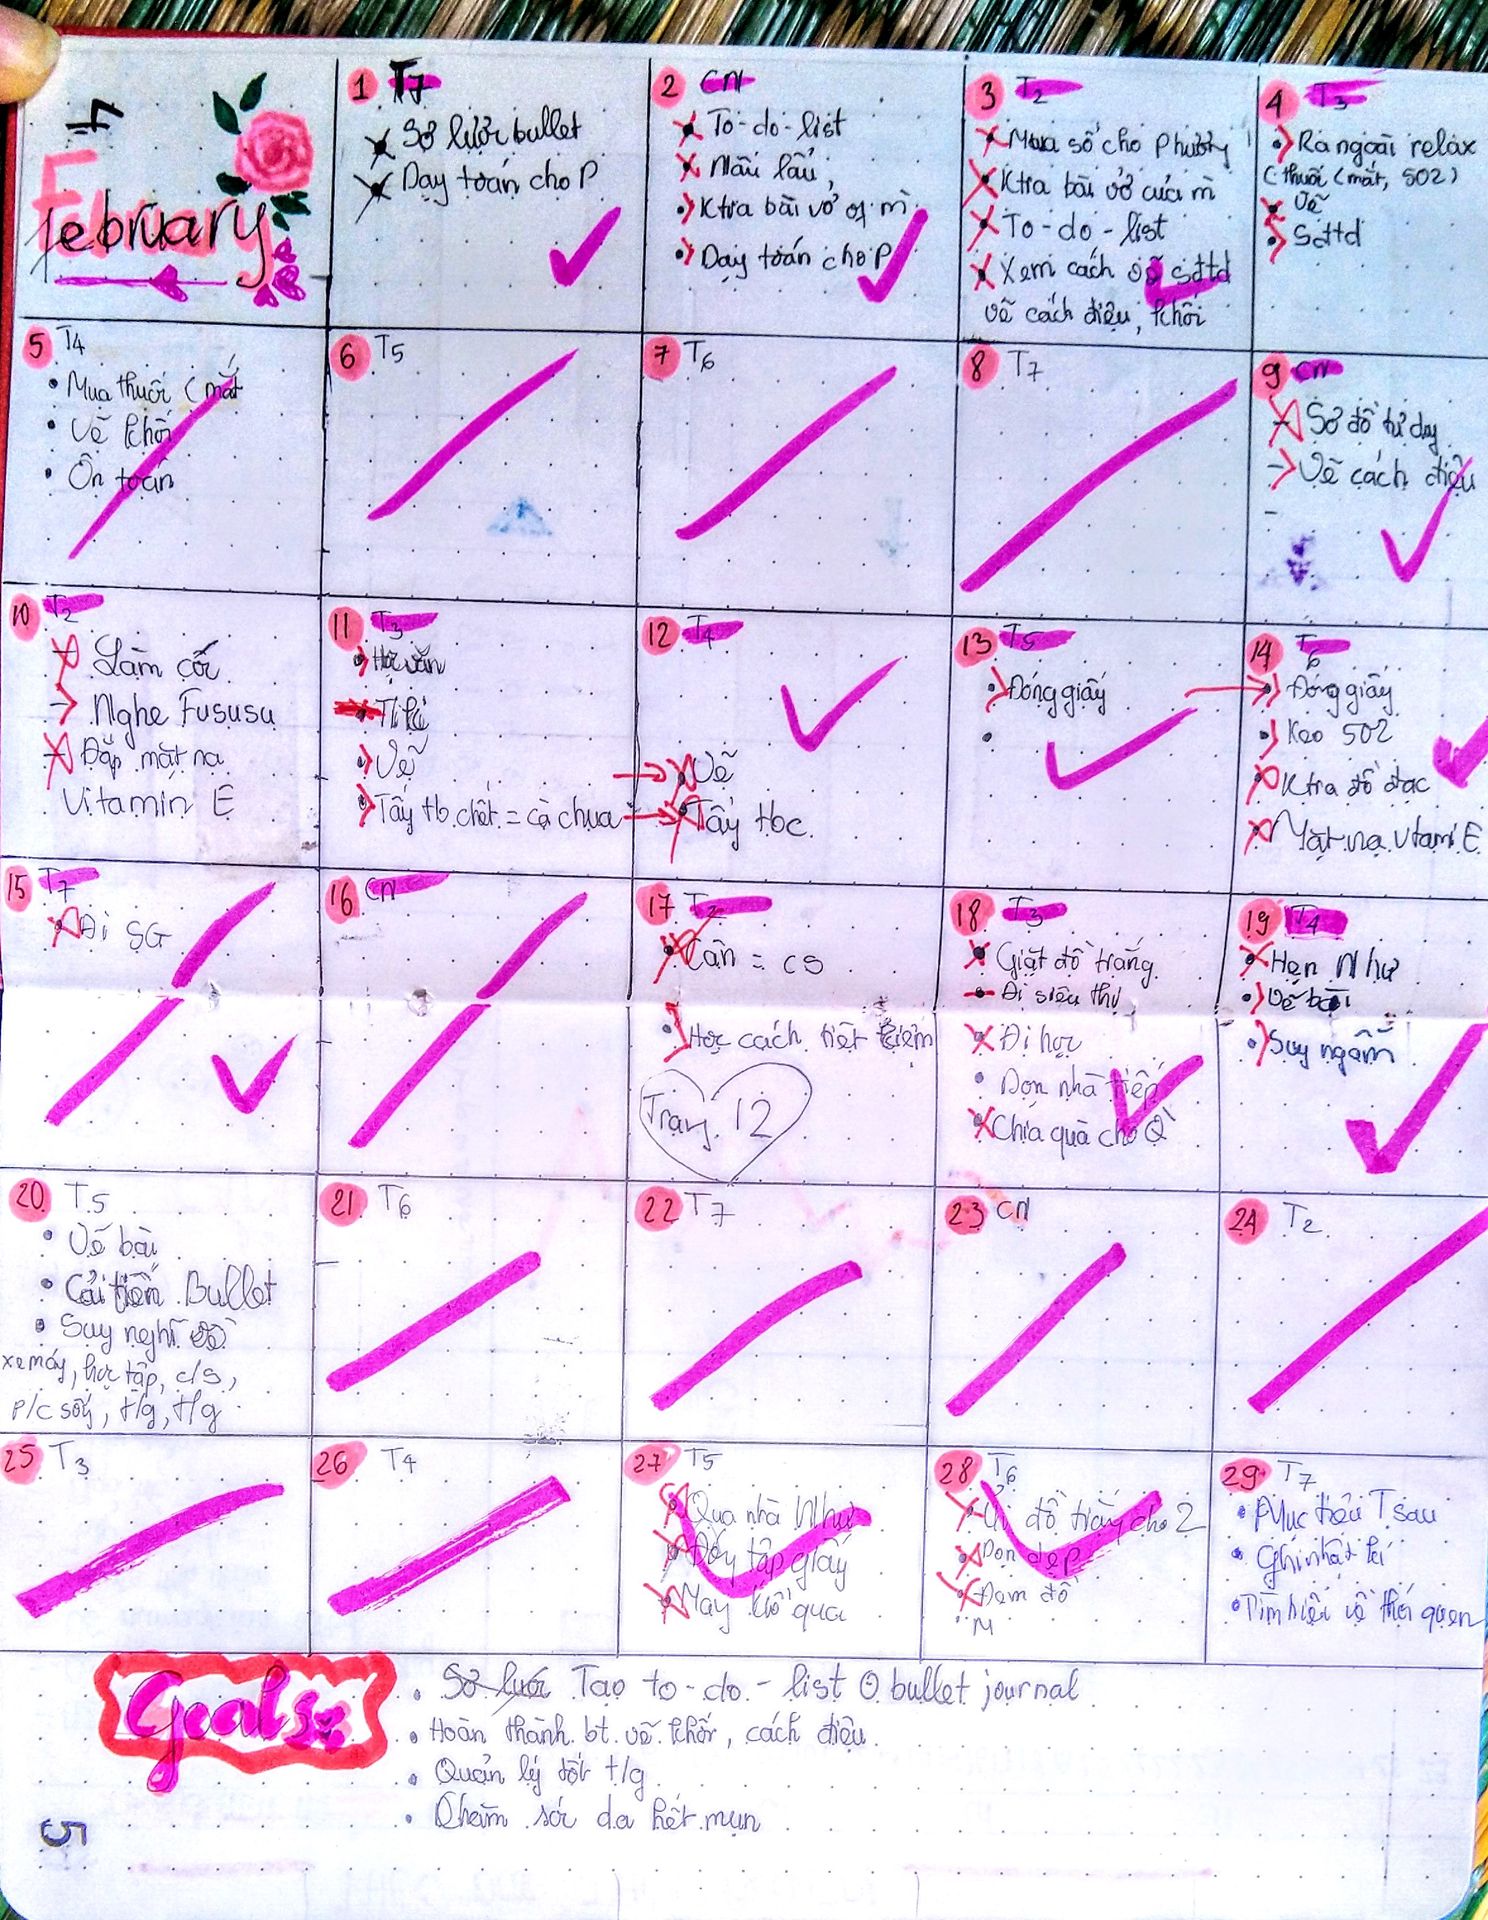 4
February
1 T7
Sơ lược bullet
Dạy toán cho P
2 CN
To-do-list
Nấu lẩu,
Ktra bài vở of m
Dạy toán cho P
3 T2
Mua sổ cho Phương
Ktra bài vở của m
To-do-list
Xem cách vẽ sđtd
vẽ cách điệu, khối
4 T3
Ra ngoài relax
(thuốc (mắt, 502)
Vẽ
Sđtd
5 T4
Mua thuốc (mắt
Vẽ khối
Ôn toán
6 T5
7 T6
8 T7
9 CN
Sơ đồ tư duy
Vẽ cách điệu
10 T2
Làm cốc
Nghe Fususu
Đắp mặt nạ
Vitamin E
11 T3
Học văn
Vẽ
Tẩy tb chết = cà chua
12 T4
Vẽ
Tẩy tbc
13 T5
Đóng giấy
14 T6
Đóng giấy
Keo 502
Ktra đồ đạc
Mặt nạ vitami E
15 T7
Đi SG
16 CN
17 T2
Cân = CS
Học cách tiết kiệm
Trang 12
18 T3
Giặt đồ trắng
Đi siêu thị
Đi học
Dọn nhà tiếp
Chia quà cho Q
19 T4
Hẹn Như
Vẽ bài
Suy ngẫm
20 T5
Vẽ bài
Cải tiến Bullet
Suy nghĩ về
xe máy, học tập, c/s,
p/c sống, t/g, t/g
21 T6
22 T7
23 CN
24 T2
25 T3
26 T4
27 T5
Qua nhà Như
Đóng tập giấy
May khổ qua
28 T6
Ủi đồ trắng cho 2
Dọn dẹp
Đem đồ
M
29 T7
Mục tiêu T sau
Ghi nhật kí
Tìm hiểu về thói quen
Goals
Sơ lược Tạo to-do-list bullet journal
Hoàn thành bt vẽ khối, cách điệu
Quản lý tốt t/g
Chăm sóc da hết mụn
5